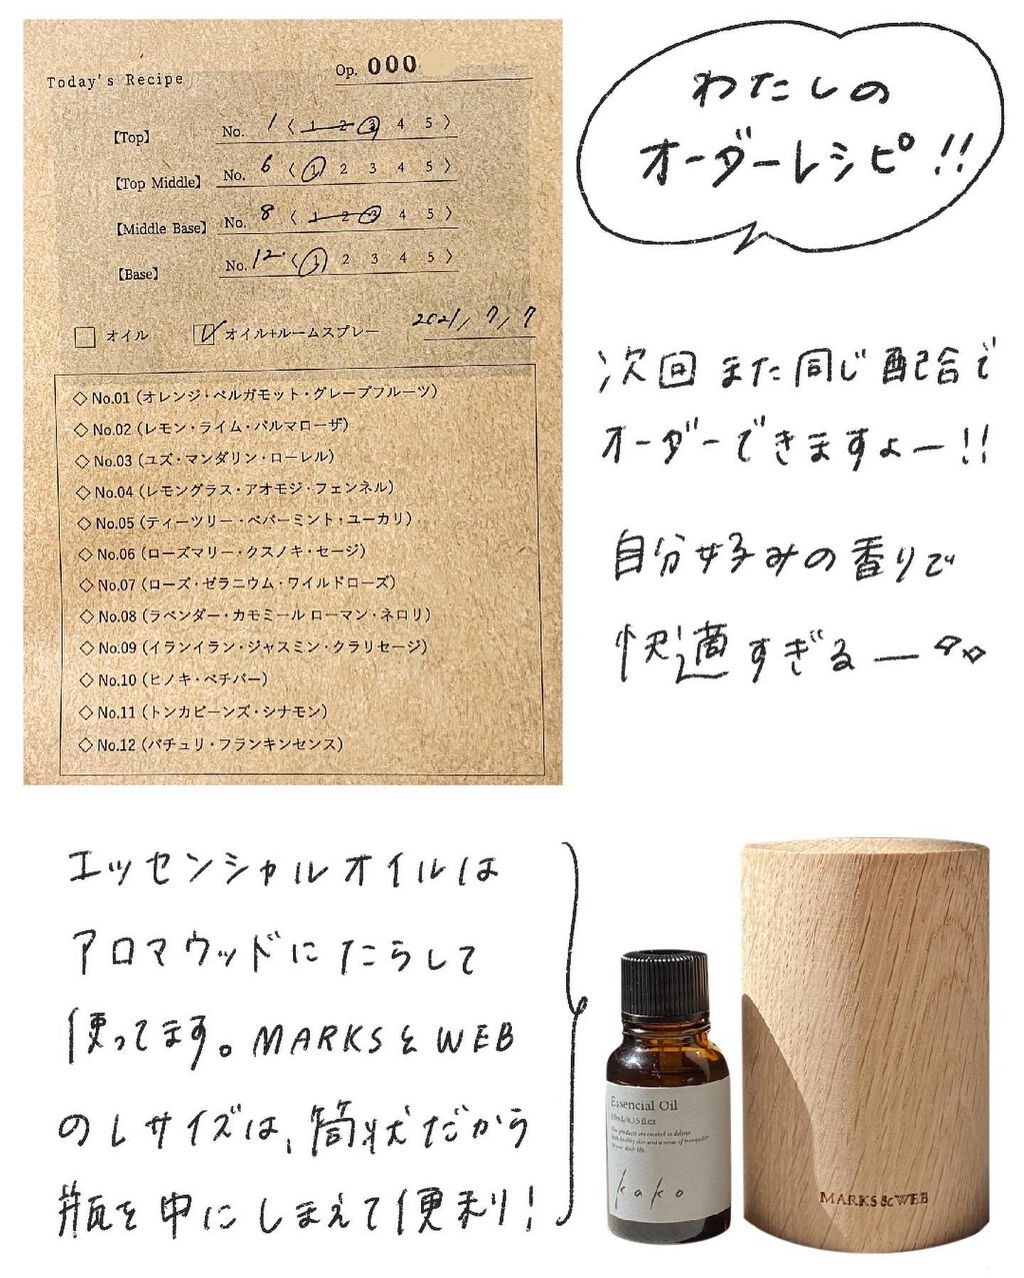 Today's Recipe
Op. 000
【Top】 No. 1 〈 1 2 3 4 5 〉
【Top Middle】 No. 6 〈 1 2 3 4 5 〉
【Middle Base】 No. 8 〈 1 2 3 4 5 〉
【Base】 No. 12 〈 1 2 3 4 5 〉
オイル オイル+ルームスプレー 2021, 7, 7
◇ No.01 (オレンジ・ベルガモット・グレープフルーツ)
◇ No.02 (レモン・ライム・パルマローザ)
◇ No.03 (ユズ・マンダリン・ローレル)
◇ No.04 (レモングラス・アオモジ・フェンネル)
◇ No.05 (ティーツリー・ペパーミント・ユーカリ)
◇ No.06 (ローズマリー・クスノキ・セージ)
◇ No.07 (ローズ・ゼラニウム・ワイルドローズ)
◇ No.08 (ラベンダー・カモミール ローマン・ネロリ)
◇ No.09 (イランイラン・ジャスミン・クラリセージ)
◇ No.10 (ヒノキ・ベチバー)
◇ No.11 (トンカビーンズ・シナモン)
◇ No.12 (パチュリ・フランキンセンス)
わたしの
オーダーレシピ!!
次回また同じ配合で
オーダーできますよー!!
自分好みの香りで
快適すぎるー
エッセンシャルオイルは
アロマウッドにたらして
使ってます。MARKS & WEB
のLサイズは、筒状だから
瓶を中にしまえて便利!
Essencial Oil
10mL/0.35 fl.oz
Our products are created to deliver
both healthy skin and a sense of tranquility
in your daily life.
kako
MARKS & WEB